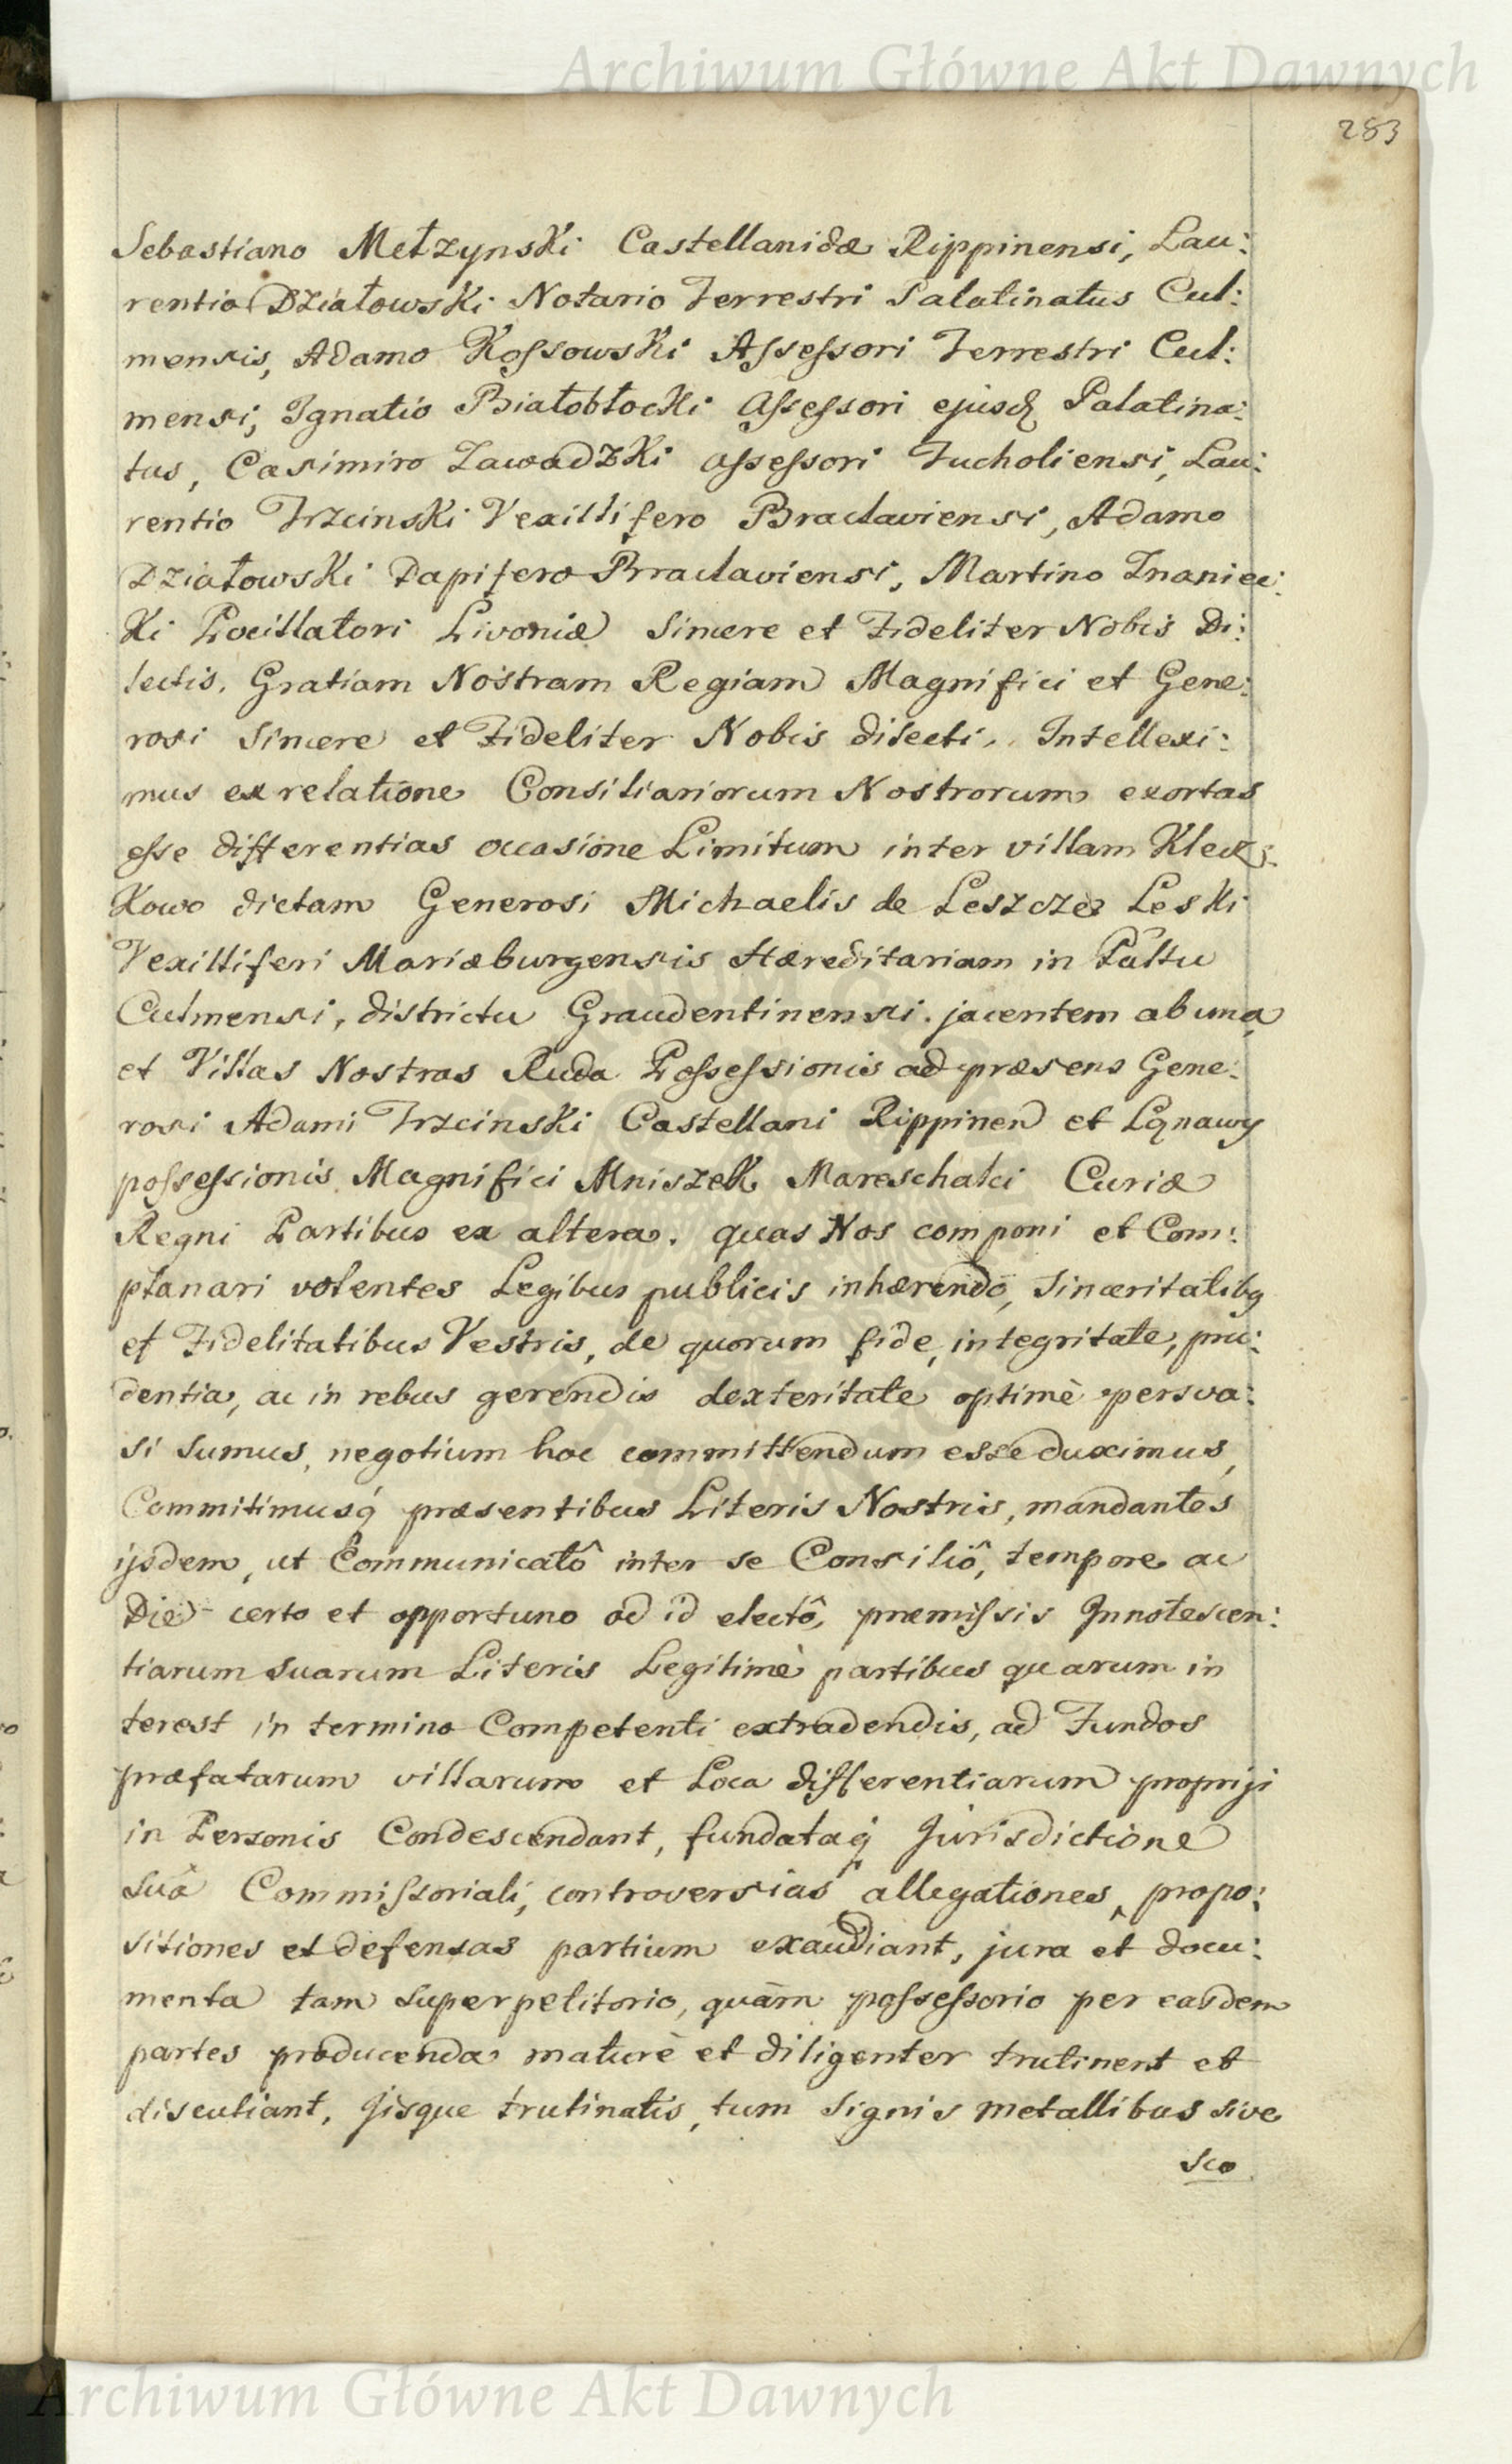 Archiwum Główne Akt Dawnych
283
Sebastiano Mełzynski Castellanidæ Rippinensi, Lau:
rentio Działowski Notario Terrestri Palatinatus Cul:
mensis, Adamo Kossowski Assessori Terrestri Cul:
mensi, Ignatio Białobłocki Assessori ejusdꝫ Palatina:
tus, Casimiro Zawadzki assessori Tucholiensi, Lau:
rentio Trzcinski Vexillifero Braclaviensi, Adamo
Działowski Dapifero Braclaviensi, Martino Znaniec:
ki Pocillatori Livoniæ Sincere et Fideliter Nobis Di:
lectis. Gratiam Nostram Regiam Magnifici et Gene:
rosi Sincere et Fideliter Nobis dilecti. Intellexi:
mus ex relatione Consiliariorum Nostrorum exortas
esse differentias occasione Limitum inter villam Klecz:
kowo dictam Generosi Michaelis de Leszcze Leski
Vexilliferi Mariæburgensis Hæreditariam in Pałtu
Culmensi, districtu Graudentinensi jacentem ab una
et Villas Nostras Ruda Possessionis ad præsens Gene:
rosi Adami Trzcinski Castellani Rippinen et Lqnawy
possessionis Magnifici Mniszek Mareschalci Curiæ
Regni Partibus ex altera. quas Nos componi et Com:
planari volentes Legibus publicis inhærendo, Sinceritatibꝫ
et Fidelitatibus Vestris, de quorum fide, integritate, pru:
dentia, ac in rebus gerendis dexteritate optimè persva:
si sumus, negotium hoc committendum esse duximus,
Commitimusq́ præsentibus Literis Nostris, mandantes
ijsdem, ut Communicatô inter se Consiliô, tempore ac
Die certo et opportuno ad id electô, præmissis Innotescen:
tiarum suarum Literis Legitimè partibus quarum in
terest in termino Competenti extradendis, ad Fundos
præfatarum villarum et Loca differentiarum proprijs
in Personis Condescendant, fundataq́ Jurisdictione
suâ Commissoriali, controversias allegationes, propo:
sitiones et defensas partium exaudiant, jura et docu:
menta tam super petitorio, quàm possessorio per easdem
partes producenda maturè et diligenter trutinent et
discutiant, Jisque trutinatis, tum signis metallibus sive
sco
Archiwum Główne Akt Dawnych